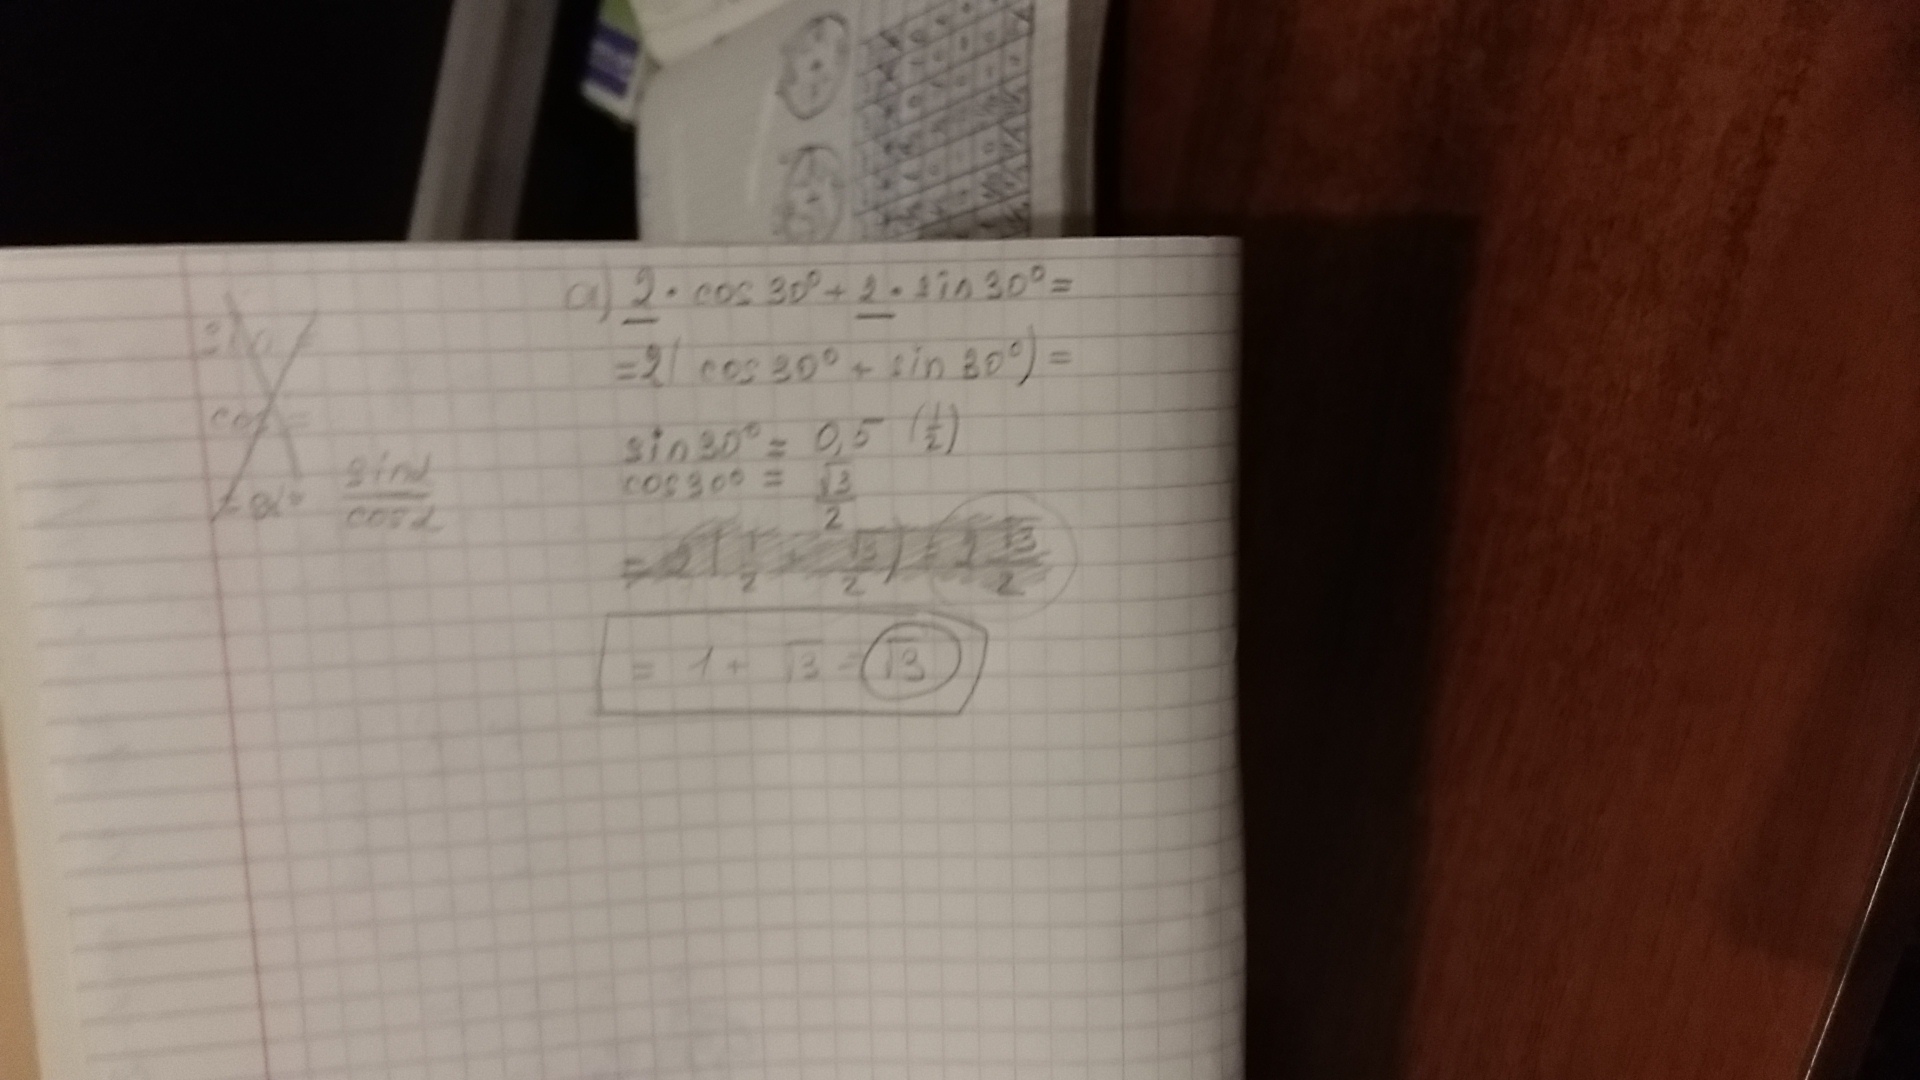 a) 2 · cos 30° + 2 · sin 30° =
= 2( cos 30° + sin 30°) =
sin 30° = 0,5 (1/2)
cos 30° = √3/2
= 2(1/2 + √3/2) = 2 √3/2
= 1 + √3 = √3
sin
cos =
sinα/cosα